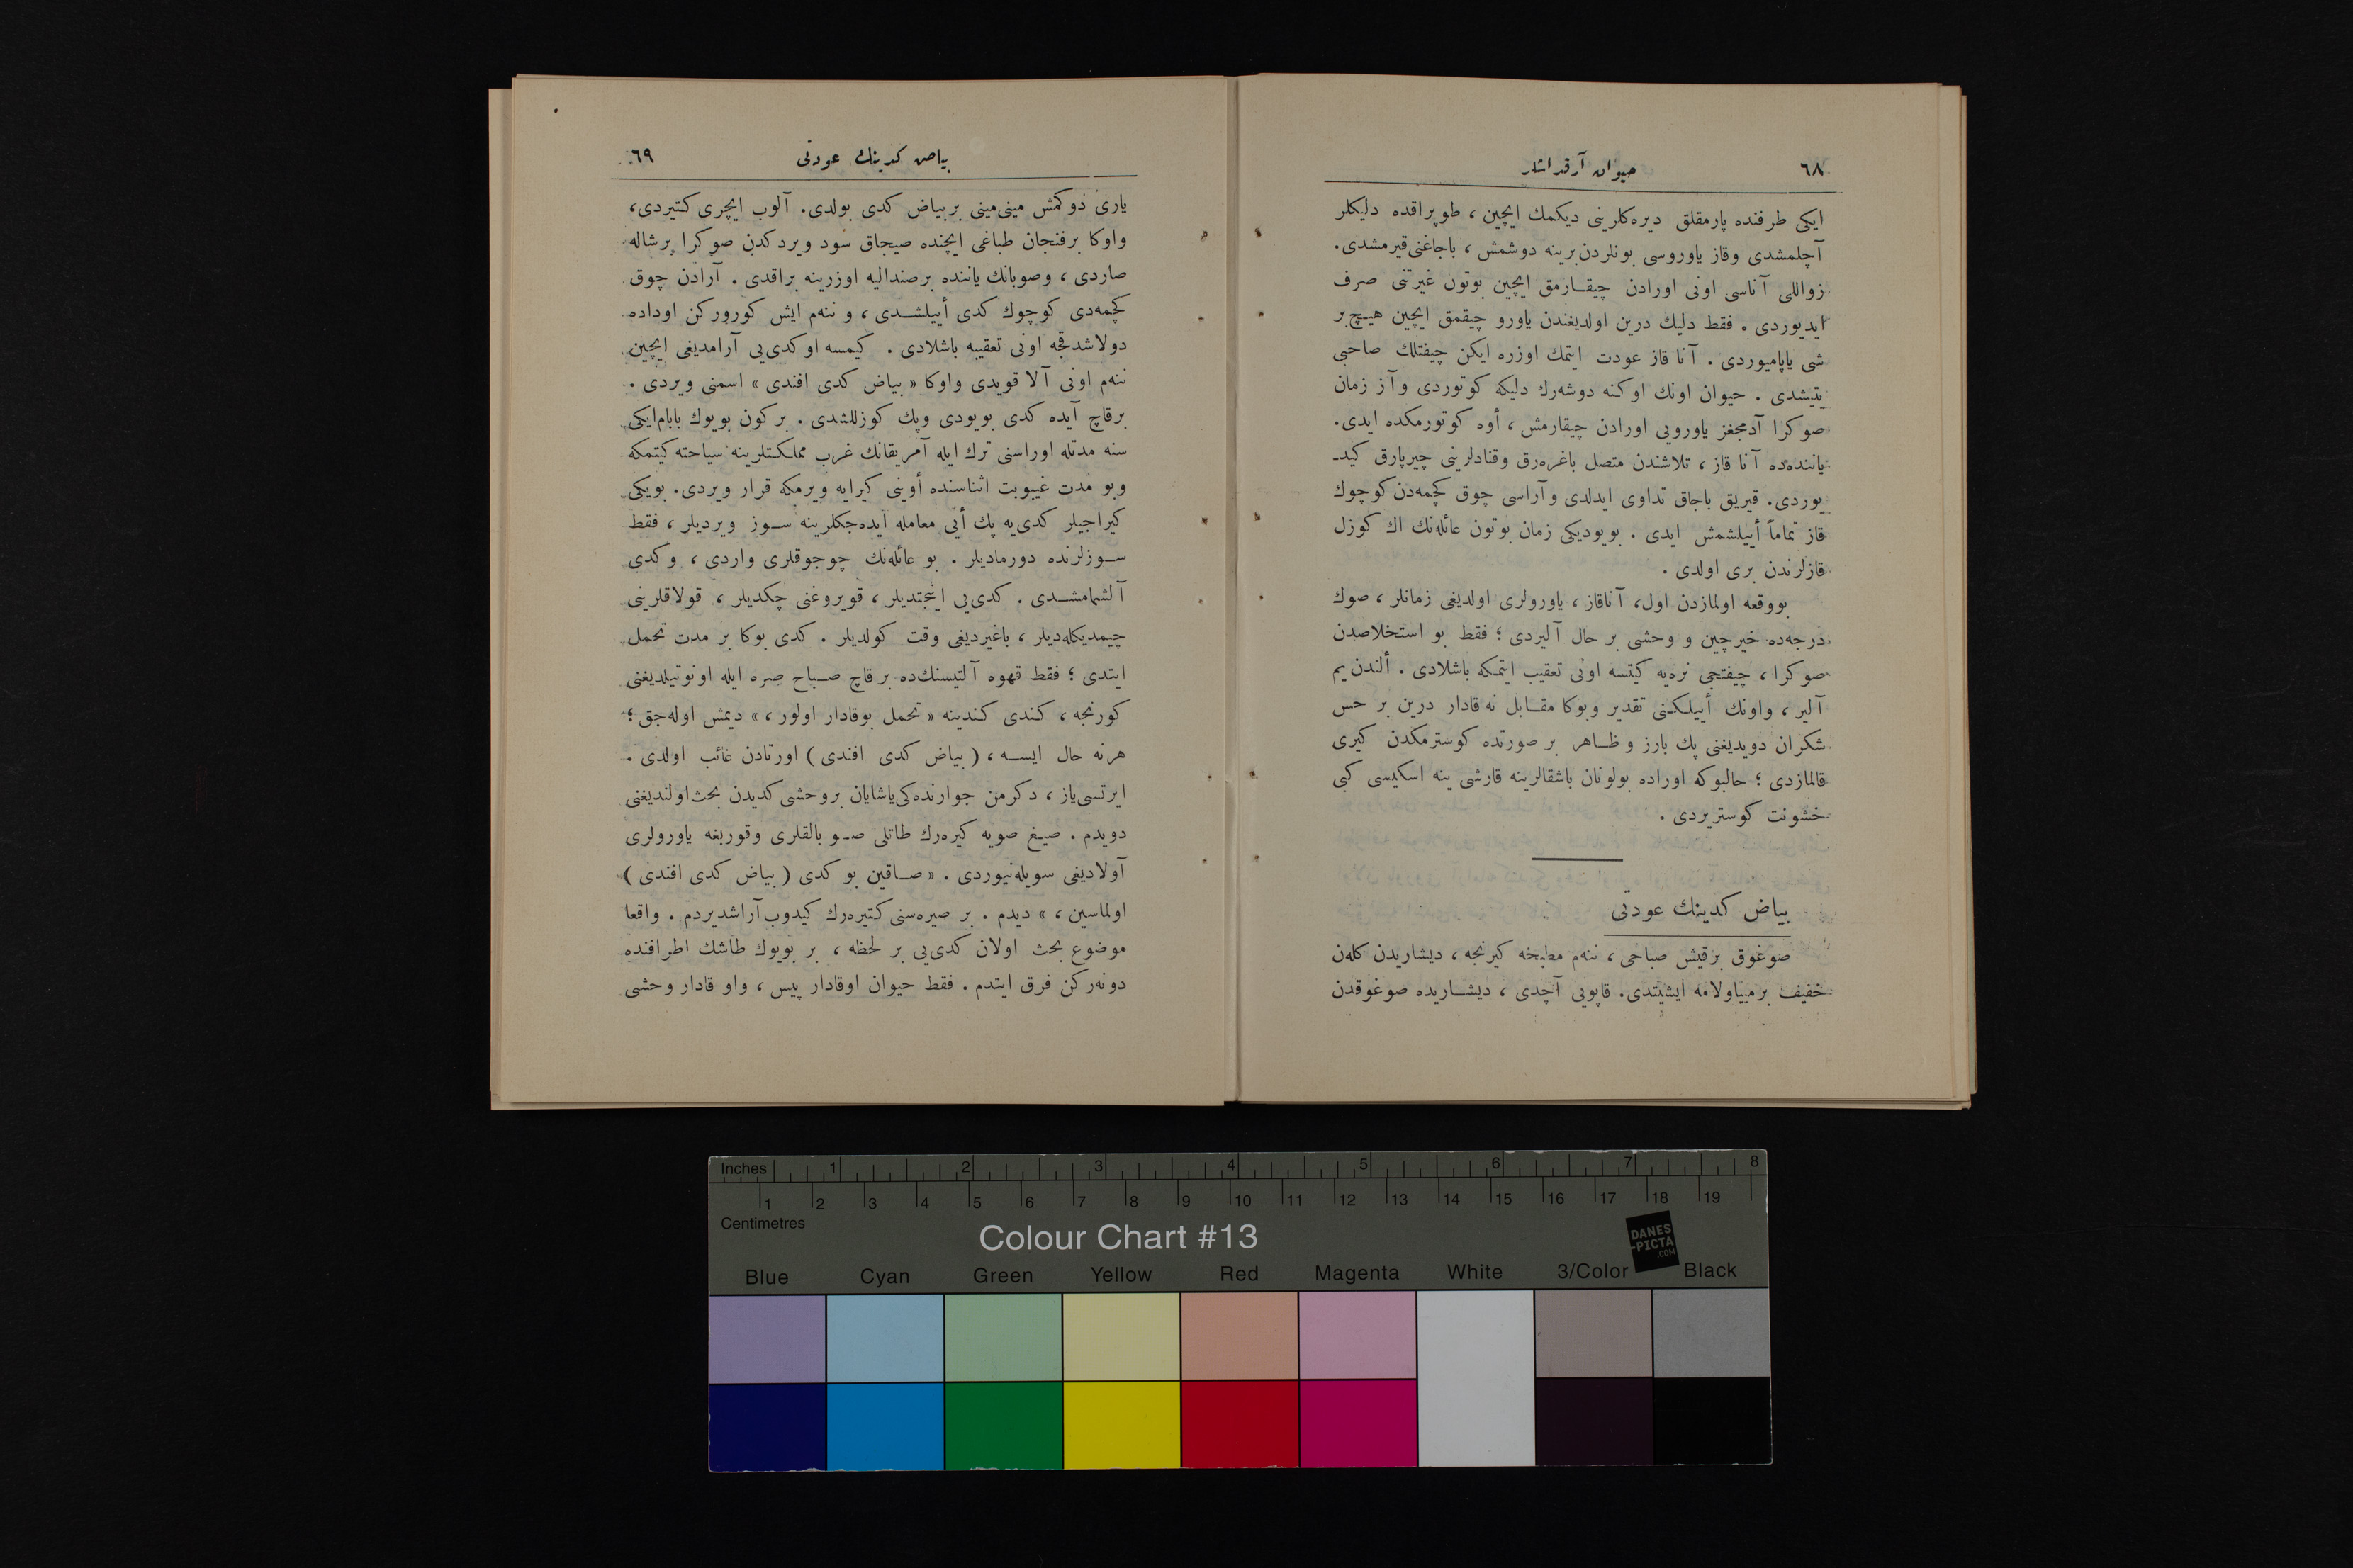 ٦٨
حيوان آرقداشلر
ايكى طرفنده پارمقلق ديره‌كلرينى ديكمك ايچين ، طوپراقده دليكلر
آچلمشدى وقاز ياوروسى بونلردن برينه دوشمش ، باجاغنى قيرمشدى.
زواللى آناسى اونى اورادن چيقارمق ايچين بوتون غيرتنى صرف
ايديوردى . فقط دليك درين اولديغندن ياورو چيقمق ايچين هيچ بر
شى ياپاميوردى . آنا قاز عودت ايتمك اوزره ايكن چيفتلك صاحبى
يتيشدى . حيوان اونك اوكنه دوشه‌رك دليكه كوتوردى وآز زمان
صوكرا آدمجغز ياورويى اورادن چيقارمش ، أوه كوتورمكده ايدى.
ياننده‌ده آنا قاز ، تلاشندن متصل باغره‌رق وقنادلرينى چيرپارق كيد-
يوردى. قيريق باجاق تداوى ايدلدى وآراسى چوق كچمه‌دن كوچوك
قاز تماماً أييلشمش ايدى . بويوديكى زمان بوتون عائله‌نك اك كوزل
قازلرندن برى اولدى .
بووقعه اولمازدن اول، آناقاز ، ياورولرى اولديغى زمانلر ، صوك
درجه‌ده خيرچين و وحشى بر حال آليردى ؛ فقط بو استخلاصدن
صوكرا ، چيفتجى نره‌يه كيتسه اونى تعقيب ايتمكه باشلادى . ألندن يم
آلير ، واونك أييلكنى تقدير وبوكا مقابل نه قادار درين بر حس
شكران دويديغنى پك بارز و ظاهر بر صورتده كوسترمكدن كيرى
قالمازدى ؛ حالبوكه اوراده بولونان باشقالرينه قارشى ينه اسكيسى كبى
خشونت كوستريردى .
بياض كدينك عودتى
صوغوق برقيش صباحى ، ننه‌م مطبخه كيرنجه ، ديشاريدن كله‌ن
خفيف برمياولامه ايشيتدى. قاپويى آچدى ، ديشاريده صوغوقدن
بياض كدينك عودتى
٦٩
يارى دوكمش مينى‌مينى بربياض كدى بولدى. آلوب ايچرى كتيردى،
واوكا برفنجان طباغى ايچنده صيجاق سود ويردكدن صوكرا برشاله
صاردى ، وصوبانك ياننده برصنداليه اوزرينه براقدى . آرادن چوق
كچمه‌دى كوچوك كدى أييلشدى ، و ننه‌م ايش كوروركن اوداده
دولاشدقجه اونى تعقيبه باشلادى . كيمسه اوكدى‌يى آرامديغى ايچين
ننه‌م اونى آلا قويدى واوكا « بياض كدى افندى » اسمنى ويردى .
برقاچ آيده كدى بويودى وپك كوزللشدى . بركون بويوك بابام‌ايكى
سنه مدتله اوراسنى ترك ايله آمريقانك غرب مملكتلرينه سياحته كيتمكه
وبو مدت غيبوبت اثناسنده أوينى كيرايه ويرمكه قرار ويردى. بويكى
كيراجيلر كدى‌يه پك أيى معامله ايده‌جكلرينه سوز ويرديلر ، فقط
سوزلرنده دورماديلر . بو عائله‌نك چوجوقلرى واردى ، وكدى
آلشمامشدى . كدى‌يى اينجتديلر ، قويروغنى چكديلر ، قولاقلرينى
چيمديكله‌ديلر ، باغيرديغى وقت كولديلر . كدى بوكا بر مدت تحمل
ايتدى ؛ فقط قهوه آلتيسنك‌ده برقاچ صباح صره ايله اونوتيلديغنى
كورنجه ، كندى كندينه « تحمل بوقادار اولور ، » ديمش اوله‌جق ؛
هرنه حال ايسه ، ( بياض كدى افندى ) اورتادن غائب اولدى .
ايرتسى‌ياز ، دكرمن جوارنده‌كى‌ياشايان بروحشى‌كديدن بحث‌اولنديغنى
دويدم . صيغ صويه كيره‌رك طاتلى صو بالقلرى وقوربغه ياورولرى
آولاديغى سويله‌نيوردى . « صاقين بو كدى ( بياض كدى افندى )
اولماسين ، » ديدم . بر صيره‌سنى كتيره‌رك كيدوب‌آراشديردم . واقعا
موضوع بحث اولان كدى‌يى بر لحظه ، بر بويوك طاشك اطرافنده
دونه‌ركن فرق ايتدم . فقط حيوان اوقادار پيس ، واو قادار وحشى
Inches 1 2 3 4 5 6 7 8
1 2 3 4 5 6 7 8 9 10 11 12 13 14 15 16 17 18 19
Centimetres
Colour Chart #13
DANES
-PICTA
.COM
Blue Cyan Green Yellow Red Magenta White 3/Color Black